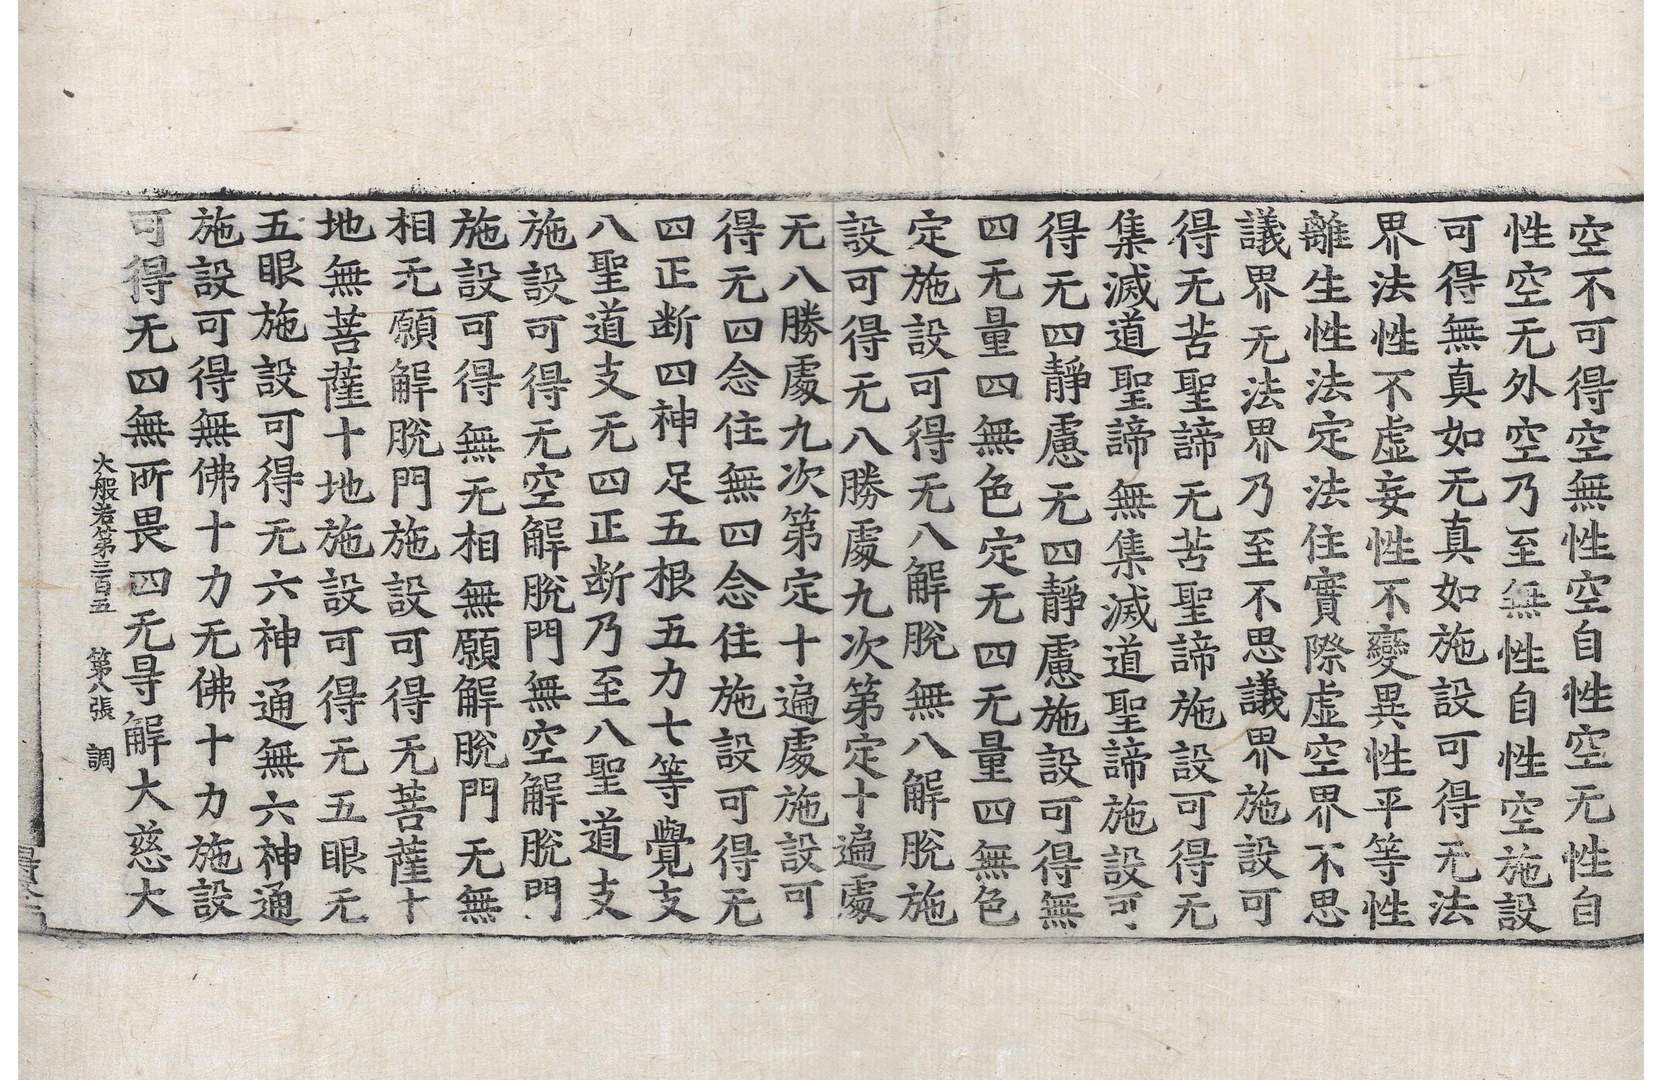 空不可得空無性空自性空无性自
性空无外空乃至無性自性空施設
可得無真如无真如施設可得无法
界法性不虛妄性不變異性平等性
離生性法定法住實際虛空界不思
議界无法界乃至不思議界施設可
得无苦聖諦无苦聖諦施設可得无
集滅道聖諦無集滅道聖諦施設可
得无四靜慮无四靜慮施設可得無
四无量四無色定无四无量四無色
定施設可得无八解脫無八解脫施
設可得无八勝處九次第定十遍處
无八勝處九次第定十遍處施設可
得无四念住無四念住施設可得无
四正断四神足五根五力七等覺支
八聖道支无四正断乃至八聖道支
施設可得无空解脫門無空解脫門
施設可得無无相無願解脫門无無
相无願解脫門施設可得无菩薩十
地無菩薩十地施設可得无五眼无
五眼施設可得无六神通無六神通
施設可得無佛十力无佛十力施設
可得无四無所畏四无㝵解大慈大
大般若第三百五　第八張　調